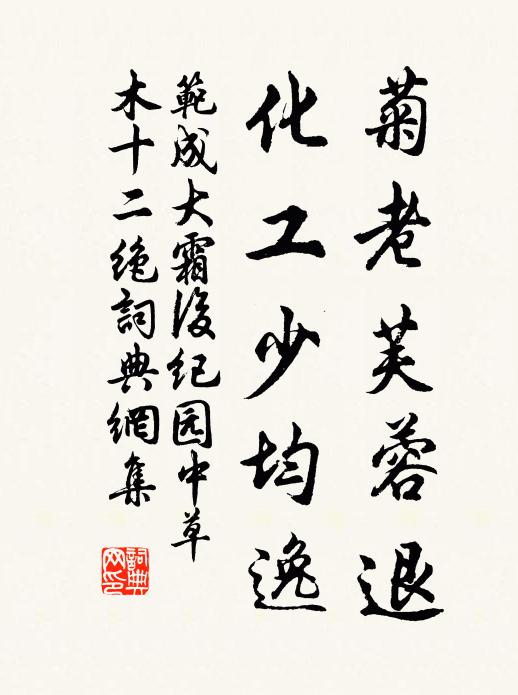 菊老芙蓉退
化工少均逸
範成大霜後纪园中草
木十二絶詞典網集
詞典网印